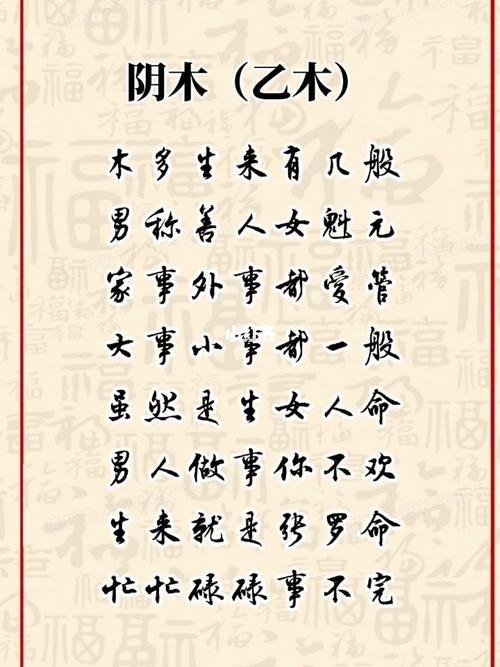 阴木（乙木）
木多生来有几般
男称善人女魁元
家事外事都爱管
大事小事都一般
虽然是生女人命
男人做事你不欢
生来就是张罗命
忙忙碌碌事不完